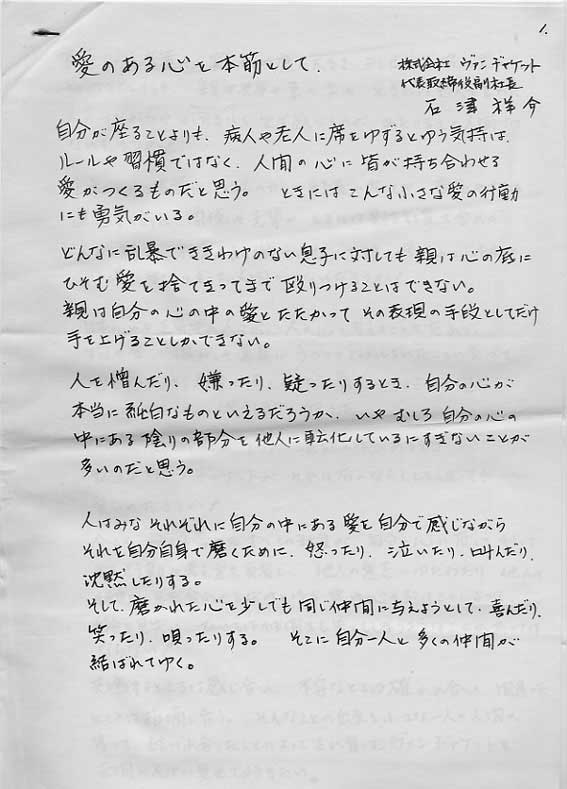 1.
愛のある心を本筋として.
株式会社 ヴァンヂャケット
代表取締役副社長
石津祥介
自分が座ることよりも、病人や老人に席をゆずるとゆう気持は、
ルールや習慣ではなく、人間の心に皆が持ち合わせる
愛がつくるものだと思う。 ときにはこんな小さな愛の行動
にも勇気がいる。
どんなに乱暴でききわけのない息子に対しても親は心の底に
ひそむ愛を捨てきってまで殴りつけることはできない。
親は自分の心の中の愛とたたかって その表現の手段としてだけ
手を上げることしかできない。
人を憎んだり、嫌ったり、疑ったりするとき、自分の心が
本当に純白なものといえるだろうか、いや むしろ自分の心の
中にある陰りの部分を他人に転化しているにすぎないことが
多いのだと思う。
人はみなそれぞれに自分の中にある愛を自分で感じながら
それを自分自身で磨くために、怒ったり、泣いたり、叫んだり、
沈黙したりする。
そして、磨かれた心を少しでも同じ仲間に与えようとして、喜んだり、
笑ったり、唄ったりする。 そこに自分一人と多くの仲間が
結ばれてゆく。